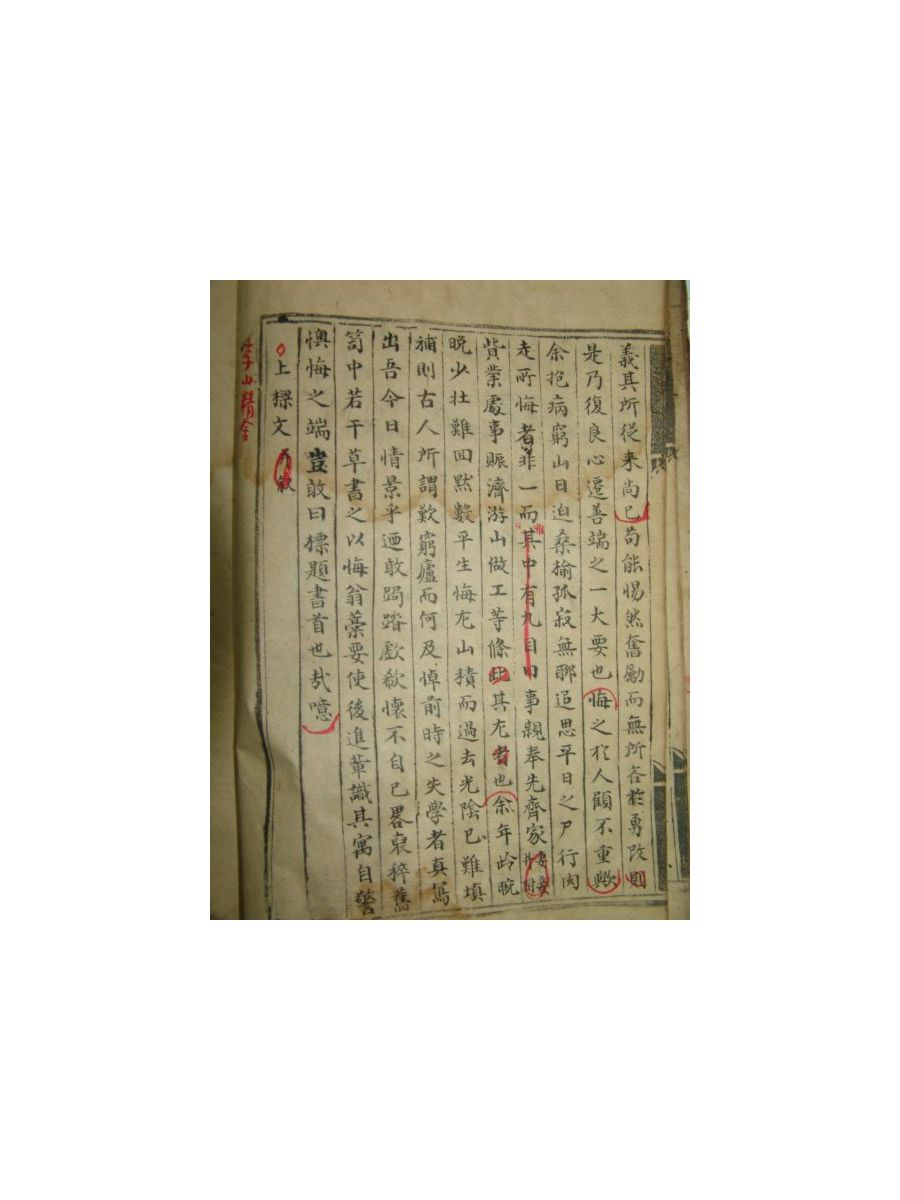 義其所從来尚已苟能惕然奮勵而無所吝於勇改則
是乃復良心遷善端之一大要也悔之於人顧不重歟
余抱病窮山日迫桑榆孤寂無聊追思平日之尸行肉
走所悔者非一而其中有九目曰事親奉先齊家
貲業處事賑濟游山做工等條此其尤者也余年岭晼
晚少壯難回默數平生悔尤山積而過去光陰已難填
補則古人所謂歎窮廬而何及悼前時之失學者真寫
出吾今日情景乎迺敢跼蹐歔欷懷不自已畧裒稡舊
笥中若干草書之以悔翁藁要使後進輩識其寓自警
懊悔之端豈敢曰標題書首也哉噫
上樑文
李山精舍